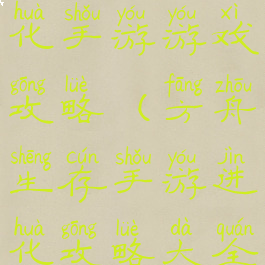 huà shǒu yóu yóu xì
化手游游戏
gōng lüè fāng zhōu
攻略(方舟
shēng cún shǒu yóu jìn
生存手游进
huà gōng lüè dà quán
化攻略大全